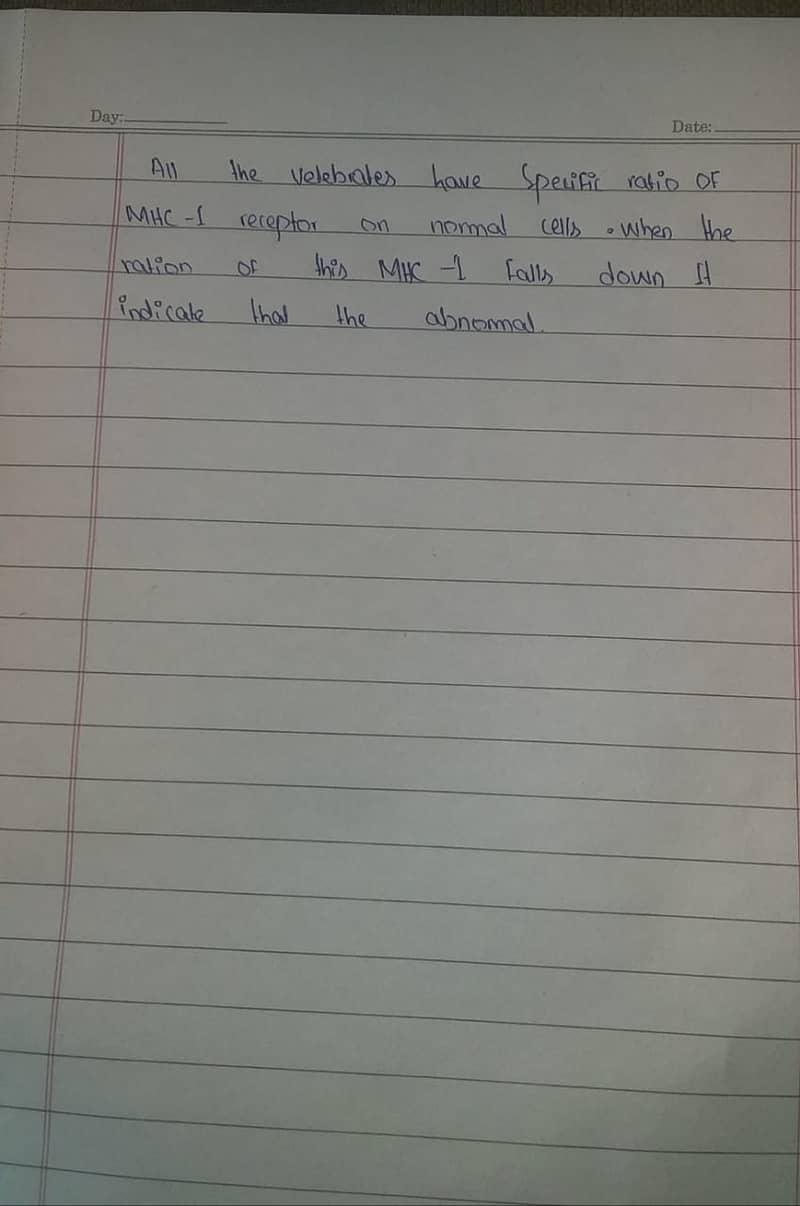 Day:
Date:
All the velebrates have specific ratio of
MHC-1 receptor on normal cells. when the
ration of this MHC-1 falls down It
indicate that the abnormal.